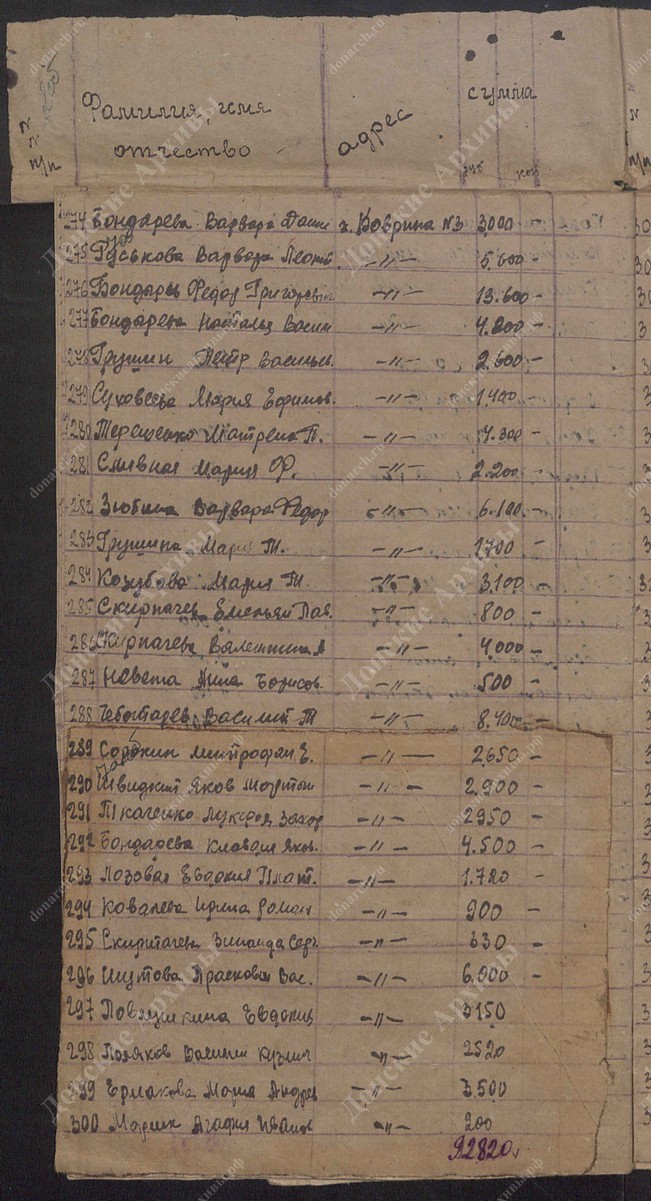 N
N
п/п
Фамилия, имя
отчество
адрес
сумма
руб коп
274 Бондарева Варвара Дани х. Воврина N3 3000 -
275 Гуськова Варвара Леонт. -"- 5.600 -
276 Бондарев Федор Григорьевич -"- 13.600 -
277 Бондарева Наталья Васил -"- 4.200 -
278 Грушин Петр Васильев. -"- 2.600 -
279 Суховеева Мария Ефимов. -"- 1.400 -
280 Терещенко Матрена П. -"- 4.300 -
281 Сливная Мария Ф. -"- 2.200 -
282 Зюбина Варвара Федор -"- 6.100 -
283 Грушина Мария Т. -"- 1700 -
284 Козубова Мария Т. -"- 3.100 -
285 Скирпачев Емельян Пав. -"- 800 -
286 Скирпачева Валентина А -"- 4.000 -
287 Невета Анна Борисов. -"- 500 -
288 Чеботарев Василий Т -"- 8.400 -
289 Сорокин Митрофан Е. -"- 2650 -
290 Швидкий Яков Мартын -"- 2.900 -
291 Ткаченко Лукерья Захар -"- 2950 -
292 Бондарева Клавдия Яков. -"- 4.500 -
293 Лозовая Евдокия Плат. -"- 1.720 -
294 Ковалева Ирина Роман -"- 900 -
295 Скирпачева Зинаида Серг -"- 330 -
296 Шутова Прасковья Вас. -"- 6.000 -
297 Повлушкина Евдокия -"- 3150
298 Поляков Василий Кузмич -"- 2520
299 Ермакова Мария Андрев -"- 3.500
300 Агафия Иванов -"- 200
92820.